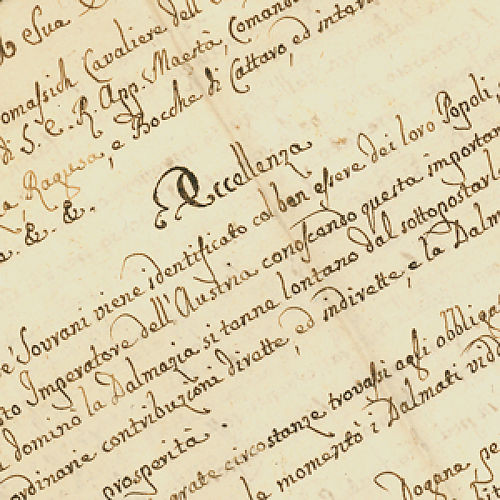 Sua
omassich Cavaliere dell'
di S. C. R. App. Maestà, Comand
Ragusa, e Bocche di Cattaro, ed inter
&. &.
Eccellenza
Sovrani viene identificato col ben essere dei loro Popoli,
sto Imperatore dell'Austria conoscendo questa importan
dominò la Dalmazia si tenne lontano dal sottopostarla
ordinarie contribuzioni dirette, ed indirette, e la Dalm
prosperità.
circostanze trovassi agli obbliga
le momento i Dalmati vid
Dogene pe